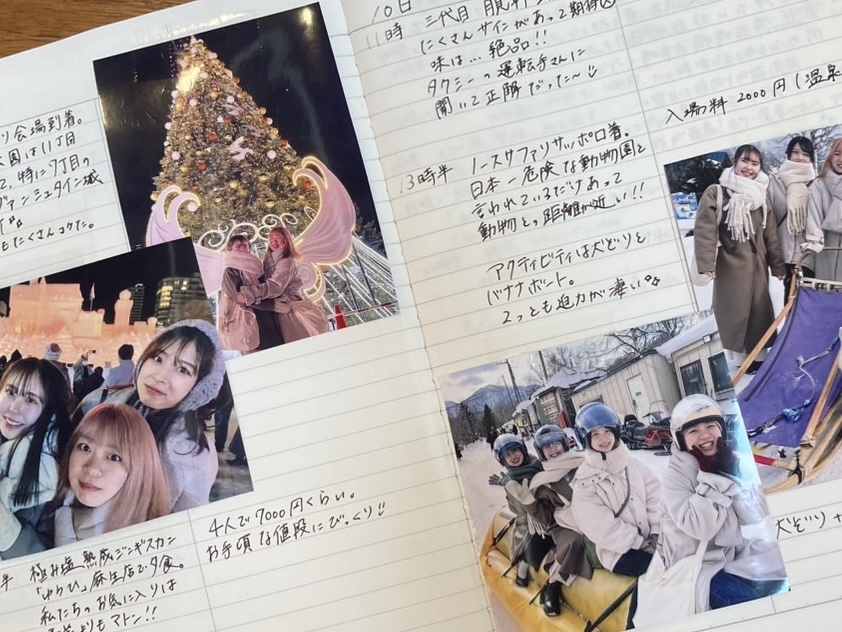 り会場到着。
園は11丁目
て、特に7丁目の
ヴァンシュタイン城
もたくさんコケた。
半 極み塩熟成ジンギスカン
「ゆらひ」麻生店で夕食。
私たちのお気に入りは
よりもマトン!!
4人で7000円くらい。
お手頃な値段にびっくり
10日
11時 三代目 月見軒
たくさんサインがあって期待
味は…絶品!!
タクシーの運転手さんに
聞いて正解だった〜
13時半 ノースサファリサッポロ着。
日本一危険な動物園と
言われているだけあって
動物との距離が近い!!
アクティビティは犬ぞりと
バナナボート。
2つとも迫力が凄い。
入場料 2000円(温泉
犬ぞり +